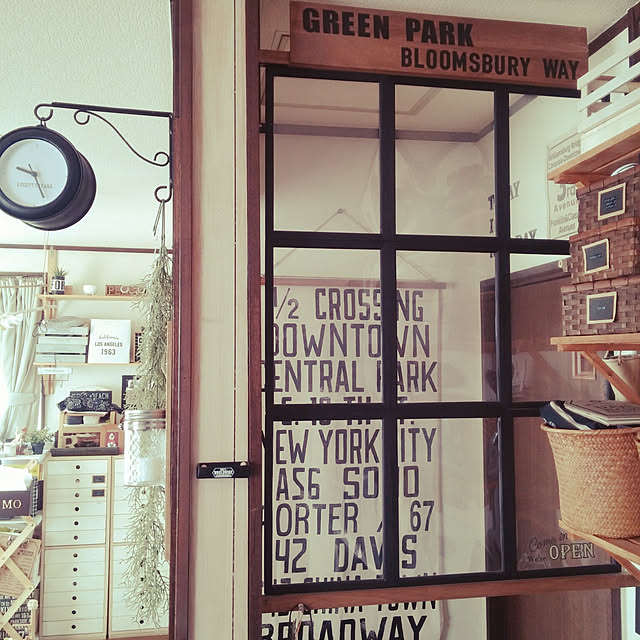 GREEN PARK
BLOOMSBURY WAY
1/2 CROSSING
DOWNTOWN
ENTRAL PARK
NEW YORK CITY
AS6 SOHO
ORTER / 67
42 DAVIS
CHINA TOWN
BROADWAY
LOS ANGELES
1963
BEACH
Come in
We're OPEN
Avenue
MO